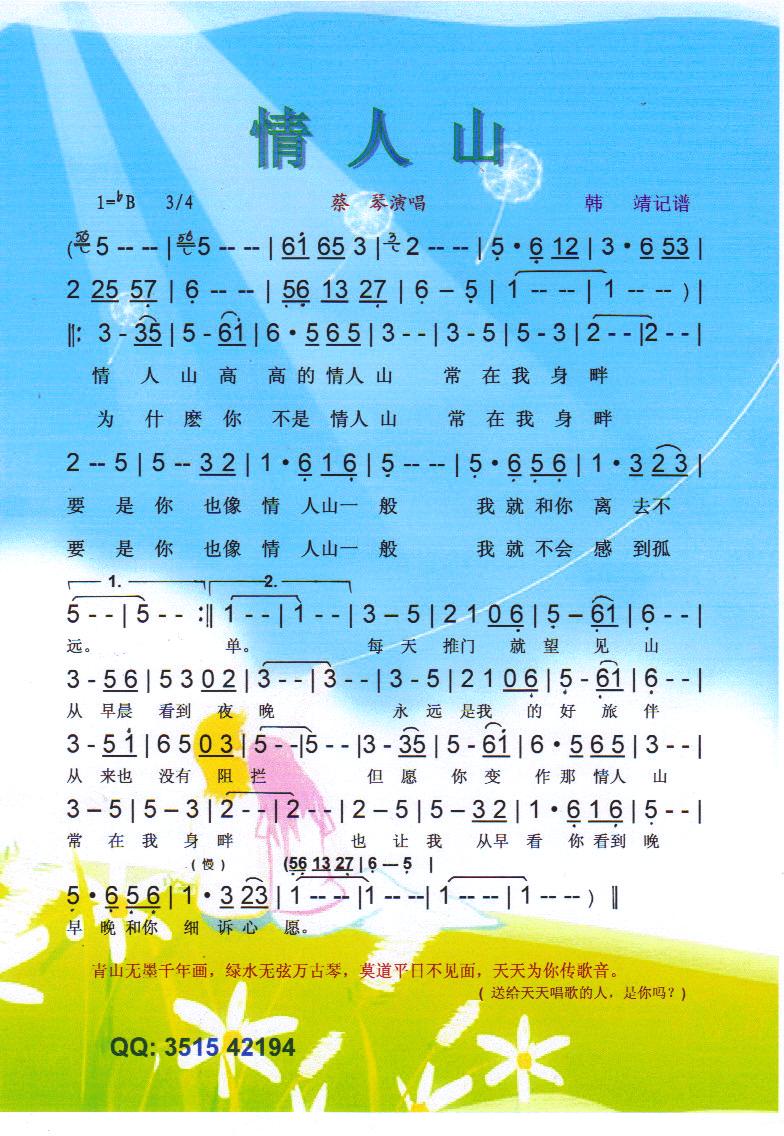 情 人 山
1=♭B 3/4 蔡 琴演唱 韩 靖记谱
(5 -- -- | 5 -- -- | 6i 65 3 | 2 -- -- | 5 · 6 12 | 3 · 6 53 |
2 25 57 | 6 -- -- | 56 13 27 | 6 – 5 | 1 -- -- | 1 -- -- ) |
‖: 3 - 35 | 5 - 6i | 6 · 5 6 5 | 3 - - | 3 - 5 | 5 - 3 | 2 - - | 2 - - |
情 人 山 高 高 的 情人 山 常 在 我 身 畔
为 什 麽 你 不是 情人 山 常 在 我 身 畔
2 -- 5 | 5 -- 3 2 | 1 · 6 1 6 | 5 -- -- | 5 · 6 5 6 | 1 · 3 2 3 |
要 是 你 也像 情 人山一 般 我 就 和你 离 去不
要 是 你 也像 情 人山一 般 我 就 不会 感 到孤
1. 2.
5 - - | 5 - - :‖ 1 - - | 1 - - | 3 – 5 | 2 1 0 6 | 5 – 6i | 6 - - |
远。 单。 每 天 推门 就 望 见 山
3 - 5 6 | 5 3 0 2 | 3 - - | 3 - - | 3 - 5 | 2 1 0 6 | 5 - 6i | 6 - - |
从 早晨 看到 夜 晚 永 远 是我 的 好 旅 伴
3 - 5 i | 6 5 0 3 | 5 - - | 5 - - | 3 - 35 | 5 - 6i | 6 · 5 6 5 | 3 - - |
从 来也 没有 阻 拦 但 愿 你 变 作 那 情人 山
3 – 5 | 5 – 3 | 2 - - | 2 - - | 2 – 5 | 5 – 32 | 1 · 6 1 6 | 5 - - |
常 在 我 身 畔 也 让 我 从早 看 你 看到 晚
( 慢 ) (56 13 27 | 6 — 5 |
5 · 6 5 6 | 1 · 3 23 | 1 -- -- | 1 -- -- | 1 -- -- | 1 -- -- ) ‖
早 晚 和你 细 诉 心 愿。
青山无墨千年画，绿水无弦万古琴，莫道平日不见面，天天为你传歌音。
( 送给天天唱歌的人，是你吗？)
QQ: 3515 42194